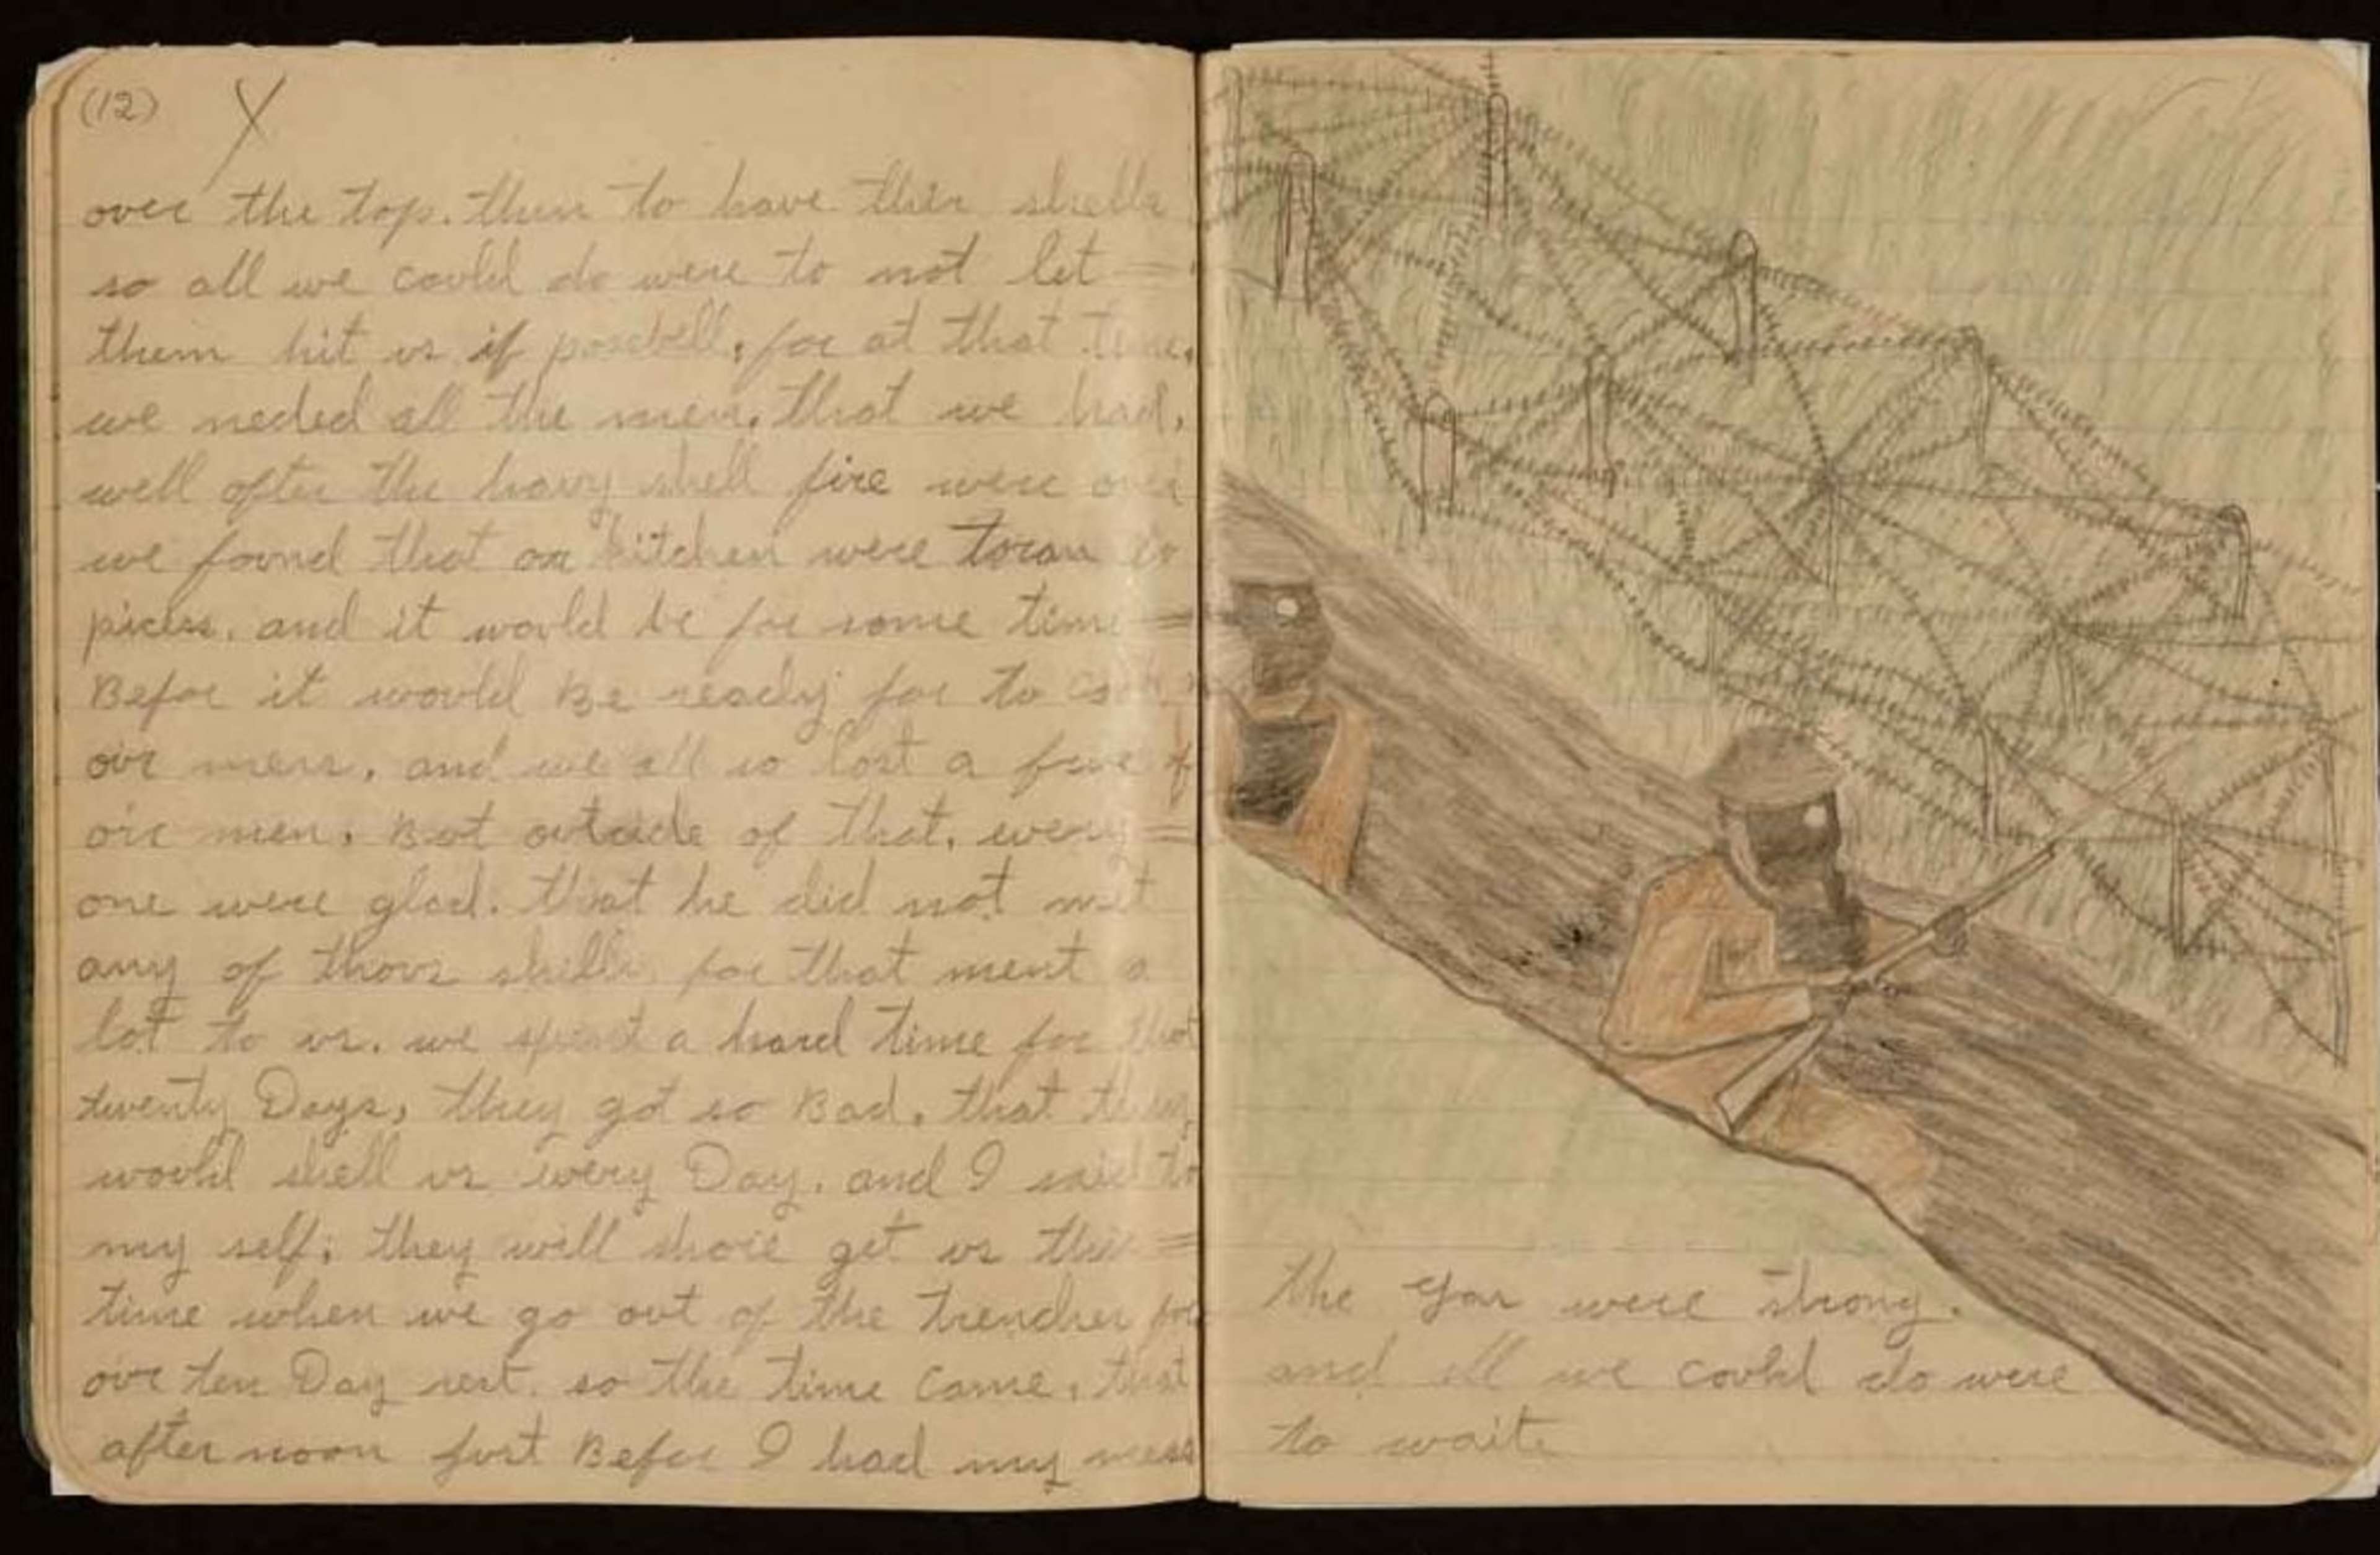 (12) X
over the top. then to have ther shells
so all we could do were to not let =
them hit us if posebill, for at that time.
we neded all the men, that we had,
well after the heavy shell fire were over
we found that our kitchen were toran to
pieces. and it would be for some time =
Befor it would Be ready for to cook
our mess, and we all so lost a few of
our men. But outside of that, every =
one were glad. that he did not met
any of thous shells for that ment a
lot to us. we spent a hard time for that
twenty Days, they got so Bad, that they
would shell us every Day. and I said to
my self; they will shore get us this =
time when we go out of the trenches for
our ten Day rest. so the time came, that
after noon just Befor I had my mess
the gas were strong.
and all we could do were
to wait